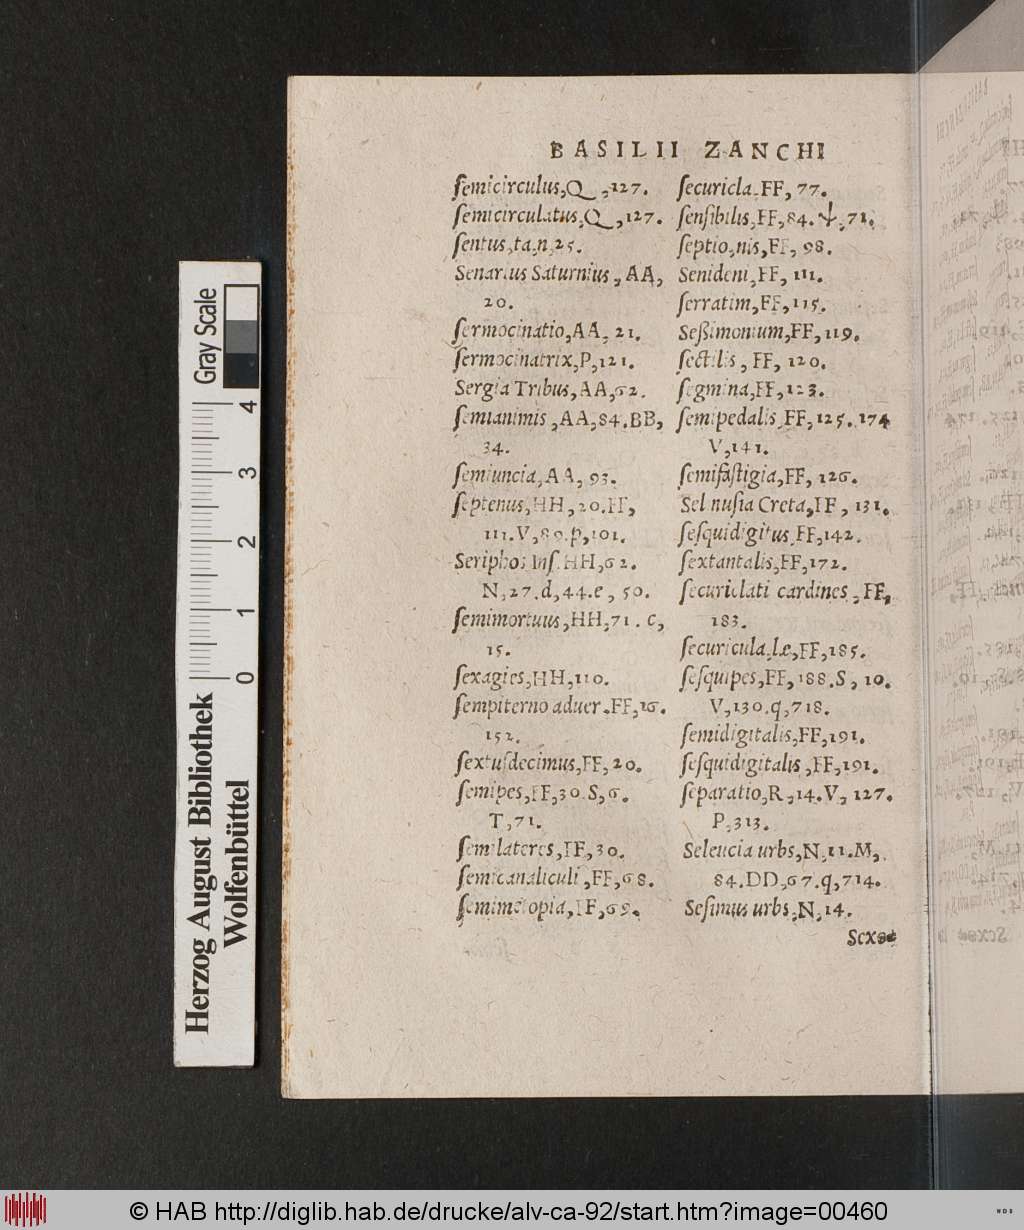 BASILII ZANCHI
ſemicirculus,Q,127.
ſemicirculatus,Q,127.
ſentus,ta,n,25.
Senarius Saturnius, AA,
20.
ſermocinatio,AA, 21.
ſermocinatrix,P,121.
Sergia Tribus,AA,62.
ſemianimis,AA,84.BB,
34.
ſemiuncia,AA, 93.
ſeptenus,HH,20.FF,
111.V,89.p,101.
Seriphos Inſ.HH,62.
N,27.d,44.e, 50.
ſemimortuus,HH,71. c,
15.
ſexagies,HH,110.
ſempiterno aduer.FF,16.
152.
ſextuſdecimus,FF, 20.
ſemipes,FF,30.S,6.
T,71.
ſemilateres,FF,30.
ſemicanaliculi,FF,68.
ſemimetopia,FF,69.
ſecuricla.FF, 77.
ſenſibilis,FF,84.ψ,71.
ſeptio,nis,FF, 98.
Senideni,FF, 111.
ſerratim,FF,115.
Seßimonium,FF,119.
ſectilis, FF, 120.
ſegmina,FF,123.
ſemipedalis,FF,125.174
V,141.
ſemifaſtigia,FF, 126.
Sel nuſia Creta,FF, 131.
ſeſquidigitus,FF,142.
ſextantalis,FF,172.
ſecuriclati cardines, FF,
183.
ſecuricula,læ,FF,185.
ſeſquipes,FF,188.S, 10.
V,130.q,718.
ſemidigitalis,FF,191.
ſeſquidigitalis,FF,191.
ſeparatio,R,14.V, 127.
P,313.
Seleucia urbs,N,11.M,
84.DD,67.q,714.
Seſimus urbs,N,14.
Gray Scale
4
3
2
1
0
Herzog August Bibliothek
Wolfenbüttel
© HAB http://diglib.hab.de/drucke/alv-ca-92/start.htm?image=00460